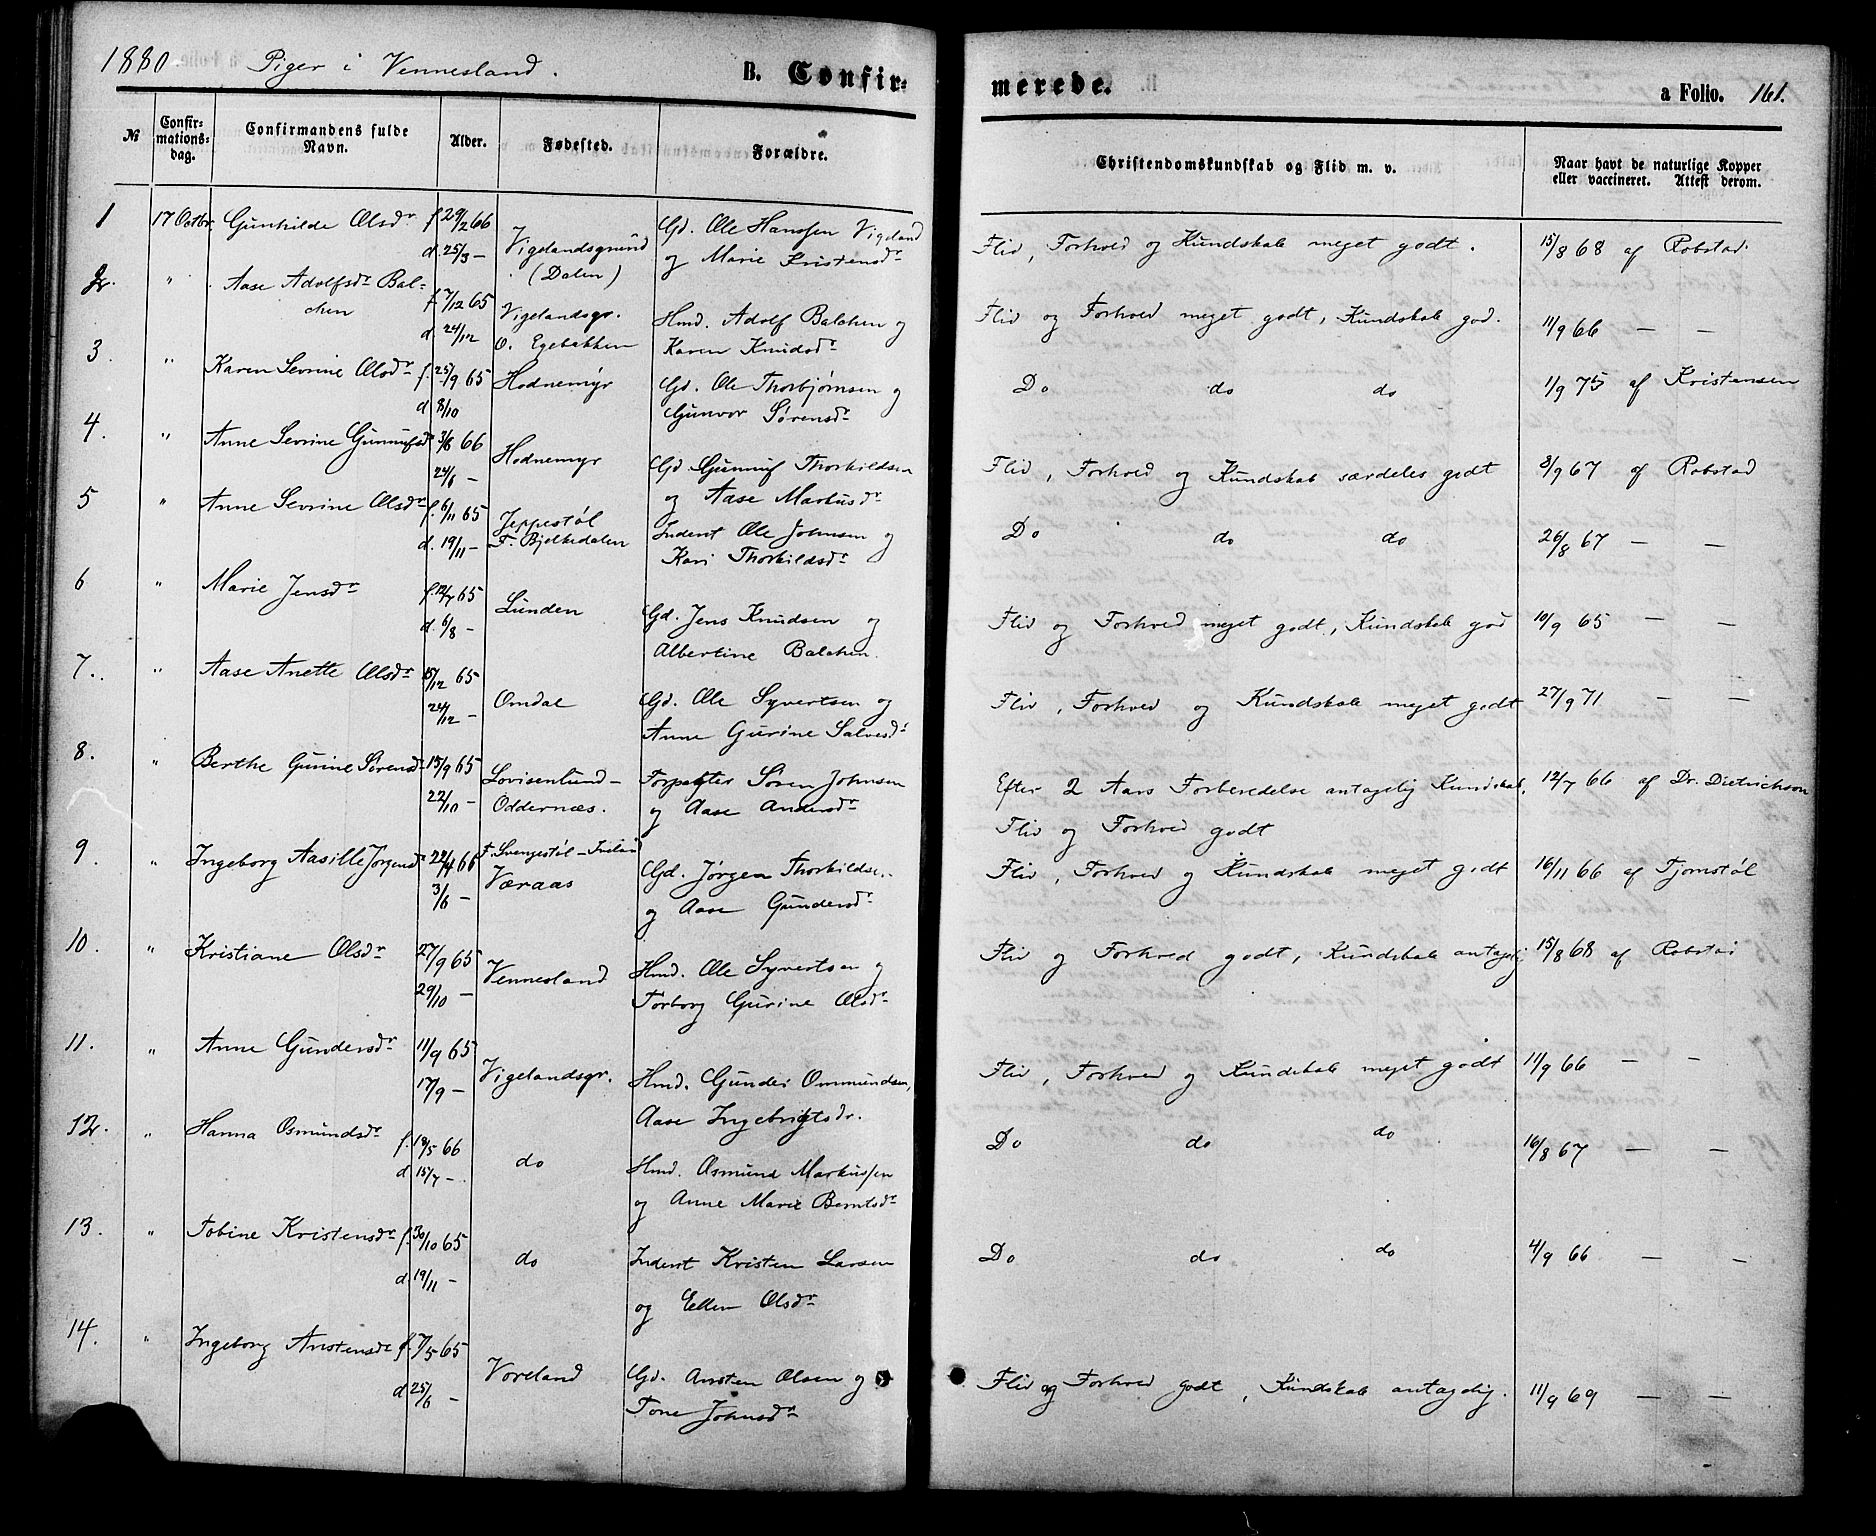 1880. Piger i Vennesland. B. Confir- merede. a Folio. 161.
№ Confir-mations-dag. Confirmandens fulde Navn. Alder. Fødested. Forældre. Christendomskundskab og Flid m. v. Naar havt de naturlige Kopper eller vaccineret. Attest derom.
1 17 Octbr. Gunhilde Olsdr. f. 29/2 66 Vigelandsgrund Gd. Ole Hanssen Vigeland Flid, Forhold og Kundskab meget godt. 15/8 68 af Robstad.
d. 25/3 – (Dalen) og Marie Kristensdr
2. " Aase Adolfsdr Bal- f. 7/12 65 Vigelandsgr. Hmd. Adolf Balchen og Flid og Forhold meget godt, Kundskab god. 11/9 66 – –
chen d 24/12 O. Egebakken Karen Knudsdr
3. " Karen Sevrine Olsdr f. 25/9 65 Hodnemyr Gd. Ole Thorbjørnsen og Do do do 1/9 75 af Kristensen
d. 8/10 Gunvor Sørensdr
4. " Anne Sevrine Gunnufsdr 3/6 66 Hodnemyr Gd. Gunnuf Thorkildsen Flid, Forhold og Kundskab særdeles godt 8/9 67 af Robstad
24/6 – og Aase Markusdr
5 " Anne Sevrine Olsdr f. 6/11 65 Jeppestøl Inderst Ole Johnsen og Do do do 26/8 67 – –
d. 19/11 – F. Bjelkedalen Kari Thorkildsdr
6 " Marie Jensdr f. 12/7 65 Lunden Gd. Jens Knudsen og Flid og Forhold meget godt, Kundskab god 10/9 65 – –
d. 6/8 – Albertine Balchen.
7. " Aase Anette Olsdr 15/12 65 Omdal Gd. Ole Syvertsen og Flid, Forhold og Kundskab meget godt 27/9 71 – –
24/12 – Anne Gurine Salvesdr
8. " Berthe Gurine Sørensdr 15/9 65 Lovisenlund – Forpagter Søren Johnsen Efter 2 Aars Forberedelse antagelig Kundskab, 12/7 66 af Dr. Dietrichson
22/10 – Oddernæs. og Aase Andersdr Flid og Forhold godt
9. " Ingeborg Aasille Jørgensdr 22/4 66 F. Svengestøl – Iveland Gd. Jørgen Thorkildsen Flid, Forhold og Kundskab meget godt 16/11 66 af Tjomstøl
3/6 – Væraas og Aase Gundersdr
10. " Kristiane Olsdr 27/9 65 Vennesland Hmd. Ole Syvertsen og Flid og Forhold godt, Kundskab antagelig 15/8 68 af Robstad
29/10 – Torborg Gurine Olsdr
11. " Anne Gundersdr 11/9 65 Vigelandsgr. Hmd. Gunder Ommundsen, Flid, Forhold og Kundskab meget godt 11/9 66 – –
17/9 – Aase Ingebrigtsdr.
12. " Hanna Osmundsdr f. 18/5 66 do Hmd. Osmund Markussen Do do do 16/8 67 – –
d 15/7 – og Anne Marie Berntsdr
13. " Tobine Kristensdr f. 30/10 65 do Inderst Kristen Larsen Do do do 4/9 66 – –
d 19/11 – og Ellen Olsdr
14. " Ingeborg Anstensdr f. 7/5 65 Voreland Gd. Ansten Olsen og Flid og Forhold godt, Kundskab antagelig. 11/9 69 – –
d 25/6 – Tone Johnsdr